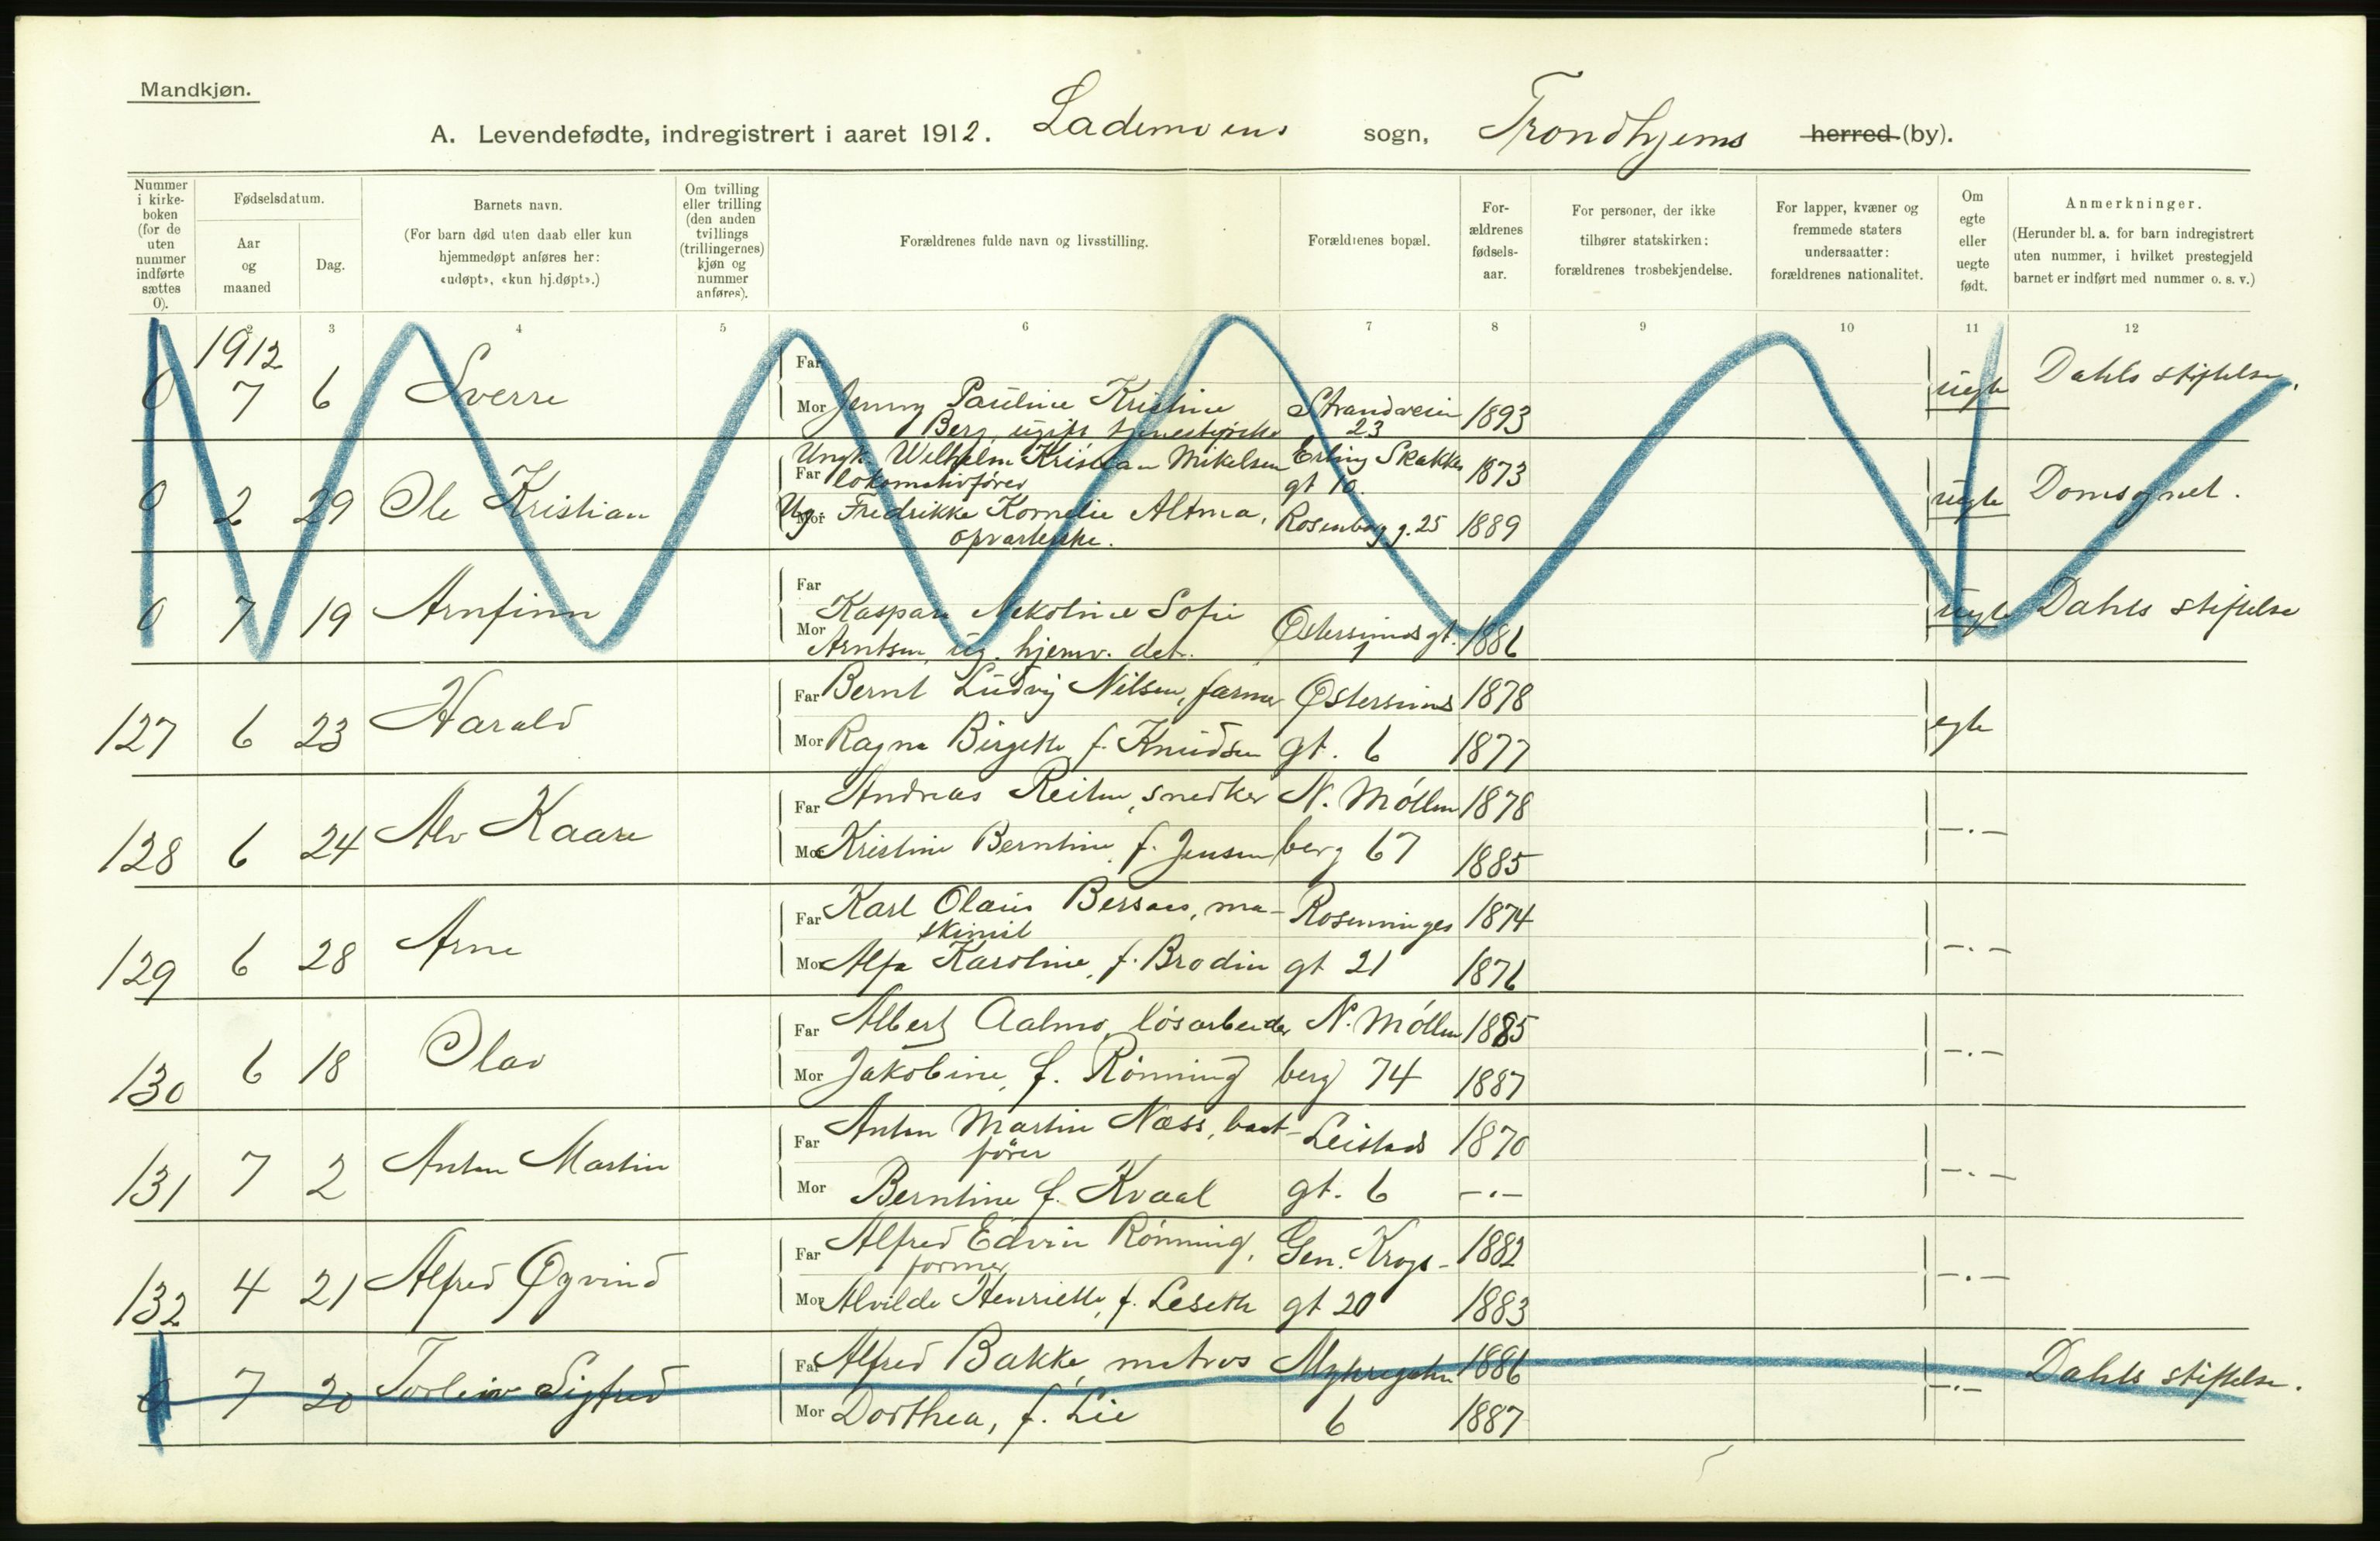 Mandkjøn.
A. Levendefødte, indregistrert i aaret 1912. Lademoens sogn, Trondhjems herred (by).
Nummer i kirkeboken (for de uten nummer indførte sættes 0).
Fødselsdatum.
Aar og maaned
Dag.
Barnets navn.
(For barn død uten daab eller kun hjemmedøpt anføres her: «udøpt», «kun hj.døpt».)
Om tvilling eller trilling (den anden tvillings (trillingernes) kjøn og nummer anføres).
Forældrenes fulde navn og livsstilling.
Forældrenes bopæl.
Forældrenes fødselsaar.
For personer, der ikke tilhører statskirken: forældrenes trosbekjendelse.
For lapper, kvæner og fremmede staters undersaatter: forældrenes nationalitet.
Om egte eller uegte født.
Anmerkninger.
(Herunder bl. a. for barn indregistrert uten nummer, i hvilket prestegjeld barnet er indført med nummer o. s. v.)
2 3 4 5 6 7 8 9 10 11 12
1912
0 7 6 Sverre Far uegte Dahls stiftelse.
Mor Jenny Pauline Kristine Strandveien 1893
Berg, ugift tjenestepike 23
Ungk. Wilhelm Kristian Mikelsen Erling Skakkes 1873
Far lokomotivfører gt 10.
0 2 29 Ole Kristian uegte Domsognet.
Ug. Mor Fredrikke Kornelie Altma, Rosenborg g. 25 1889
opvarterske.
Far
0 7 19 Arnfinn Kaspara Nekoline Sofie uegte Dahls stiftelse
Mor Arntsen, ug. hjemv. det. Østersunds gt. 1 1886
127 6 23 Harald Far Bernt Ludvig Nilsen, farmer Østersunds 1878 egte
Mor Ragna Birgitte f. Knudsen gt. 6 1877
128 6 24 Alv Kaare Far Andreas Reiten, snedker N. Möllen 1878 —.—
Mor Kristine Berntine, f. Jensen berg 67 1885
129 6 28 Arne Far Karl Olaus Bersaas, ma- Rosenninges 1874 —.—
skinist
Mor Alfa Karoline, f. Brodin gt 21 1876
130 6 18 Olav Far Albert Aalmo, løsarbeider N. Möllen 1885 —.—
Mor Jakobine, f. Rönning berg 74 1887
131 7 2 Anton Martin Far Anton Martin Næss, baat- Leistads 1870 —.—
fører
Mor Berntine f. Kvaal gt. 6 —.—
132 4 21 Alfred Øyvind Far Alfred Edvin Rönning, Gen. Krogs- 1882 —.—
former
Mor Alvilde Henriette, f. Leseth gt 20 1883
0 7 20 Torleiv Sigfred Far Alfred Bakke, matros Myhregaten 1886 —.— Dahls stiftelse.
Mor Dorthea, f. Lie 6 1887